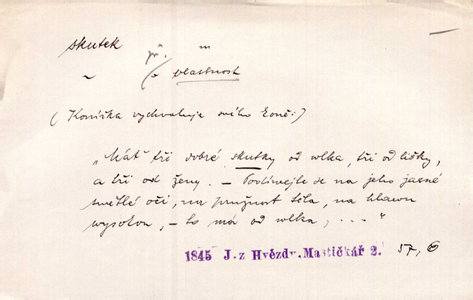 skutek př. m
~ (= vlastnost
(Koníčka vychvaluje svého koně:)
„Mát' tři dobré skutky od vlka, tři od lišky,
a tři od ženy. – Podívejte se na jeho jasné
světlé oči, na pružnost těla, na hlavu
vysokou, – to má od vlka, ... "
1845 J. z Hvězdy. Mastičkář 2. 57, 6